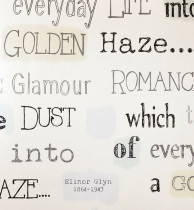 everyday LIFE into
GOLDEN Haze...
Glamour ROMANC
DUST which
into of every
AZE.... Elinor Glyn a GO
1864-1943